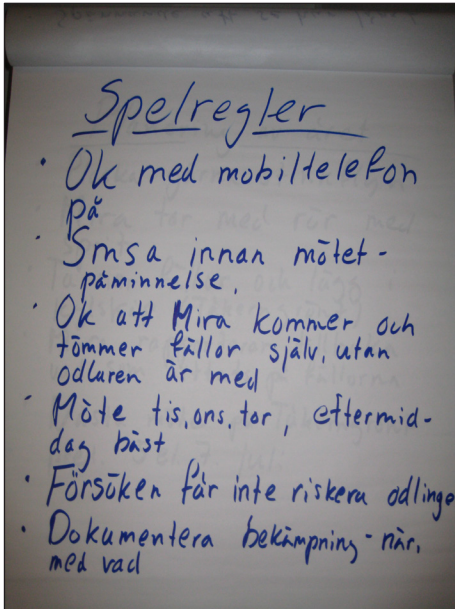 Spelregler
· Ok med mobiltelefon
på
· Smsa innan mötet -
påminnelse.
· Ok att Mira kommer och
tömmer fällor själv, utan
odlaren är med
· Möte tis, ons, tor, eftermid-
dag bäst
· Försöken får inte riskera odlinge
· Dokumentera bekämpning - när,
med vad